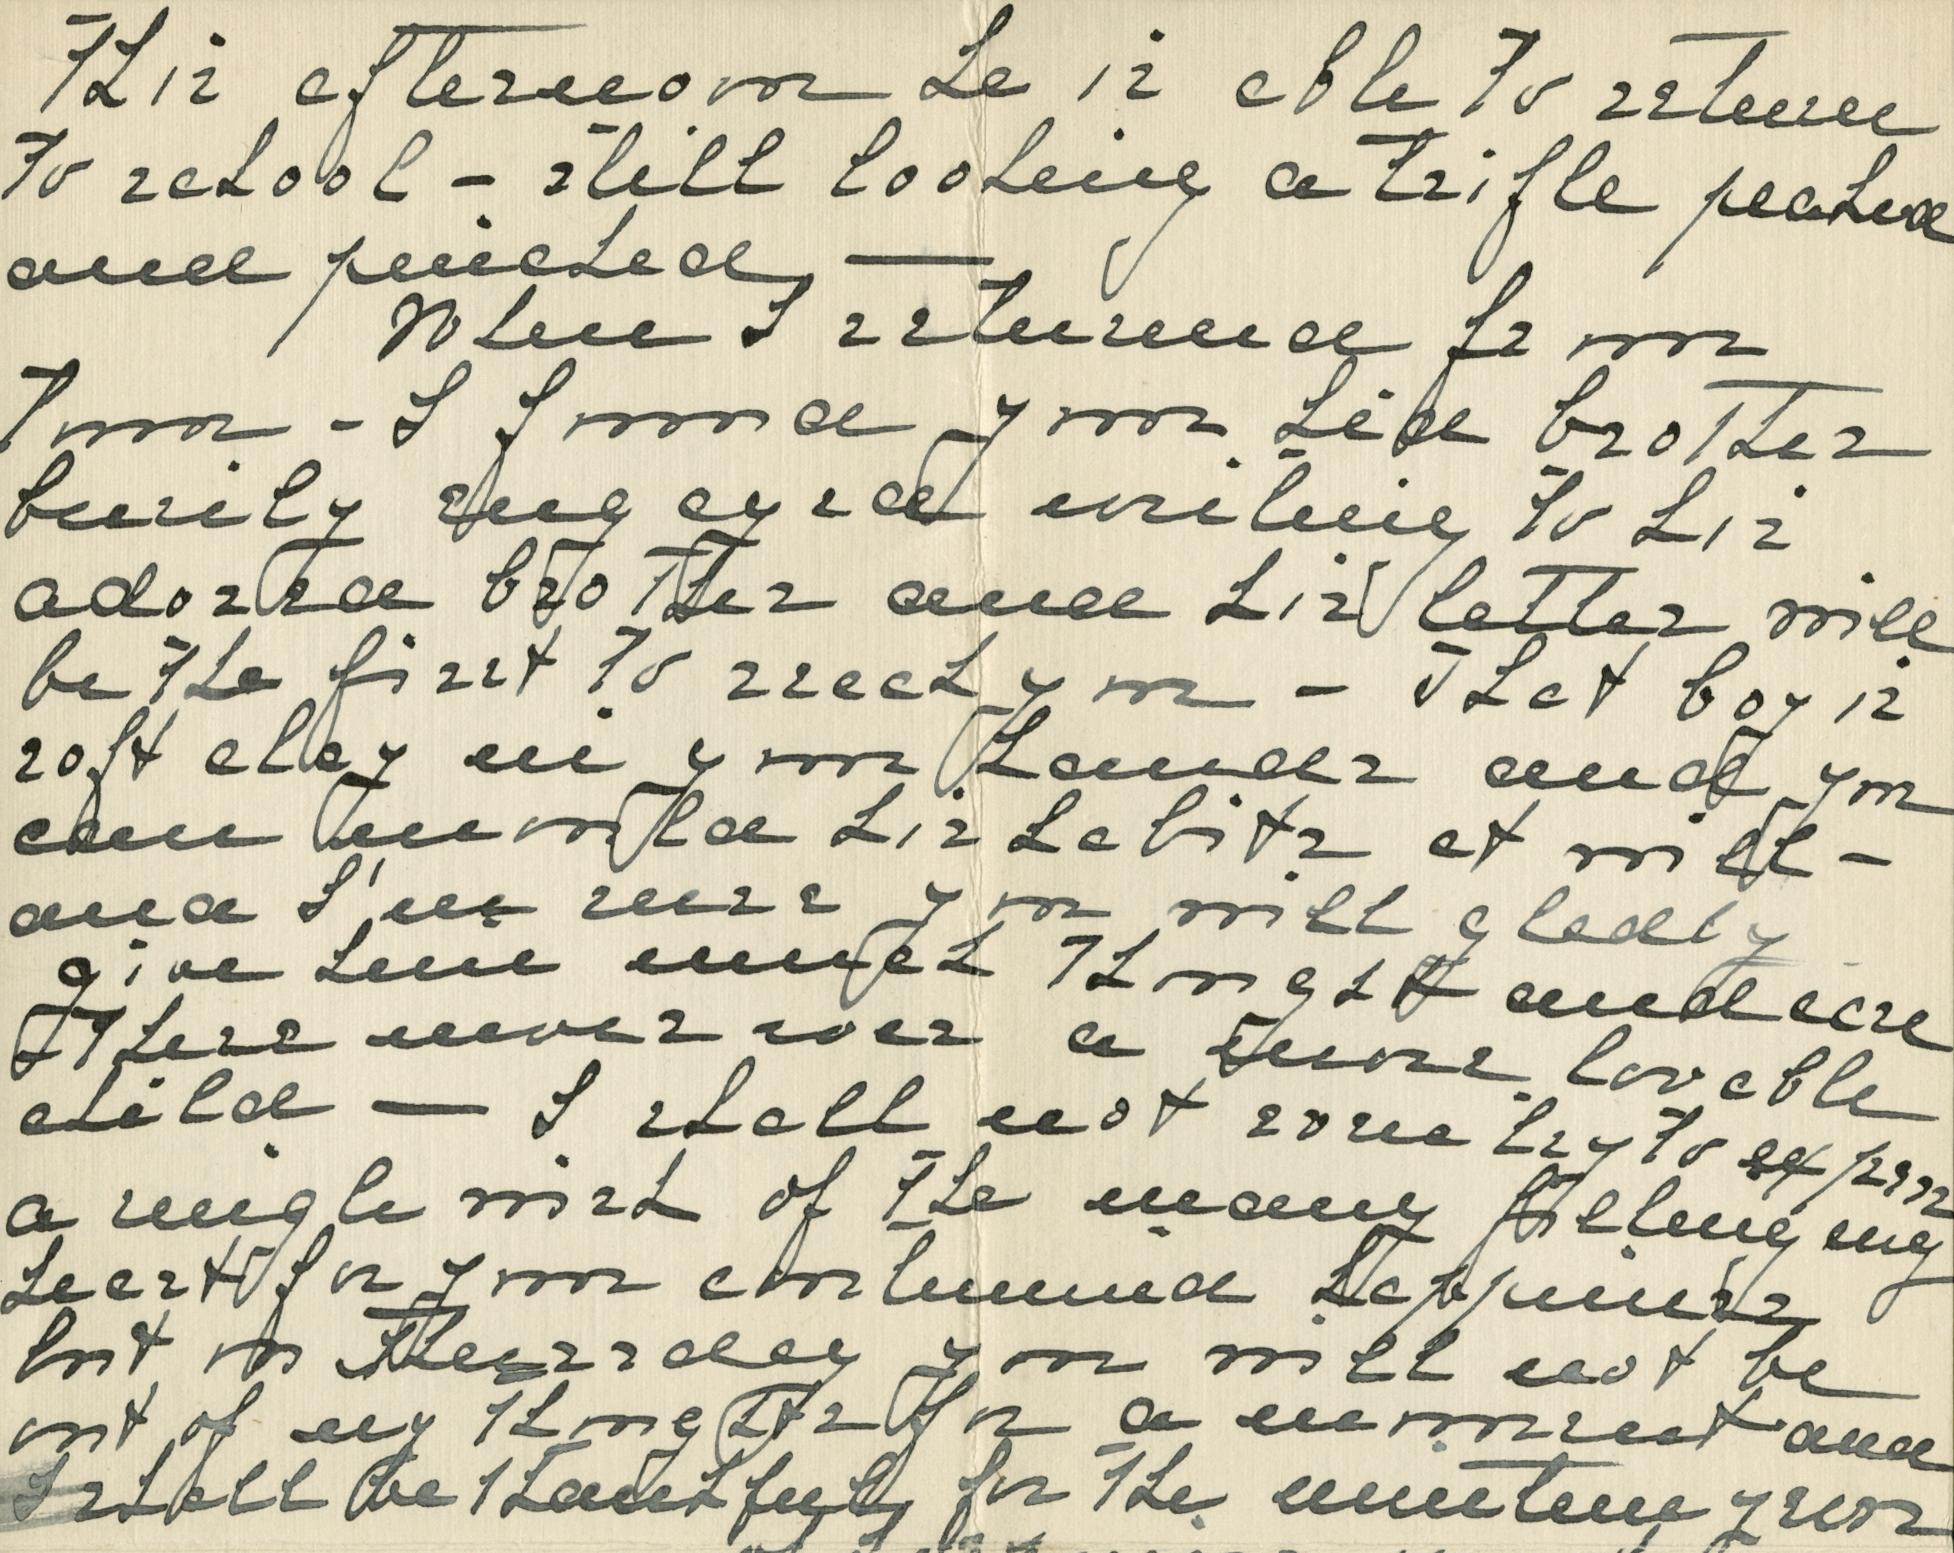 This afternoon he is able to return
to school - still looking a trifle peaked
and pinched, —
When I returned from
Town - I found your kid brother
busily engaged writing to his
adored brother and his letter will
be the first to reach you - That boy is
soft clay in your hands and you
can mould his habits at will -
and I'm sure you will gladly
give him much thought and care
There never was a more lovable
child — I shall not some try to express
a single wish of the many filling my
heart for your continued happiness
but on Thursday you will not be
out of my thoughts for a moment and
I shall be thankful for the nineteen years